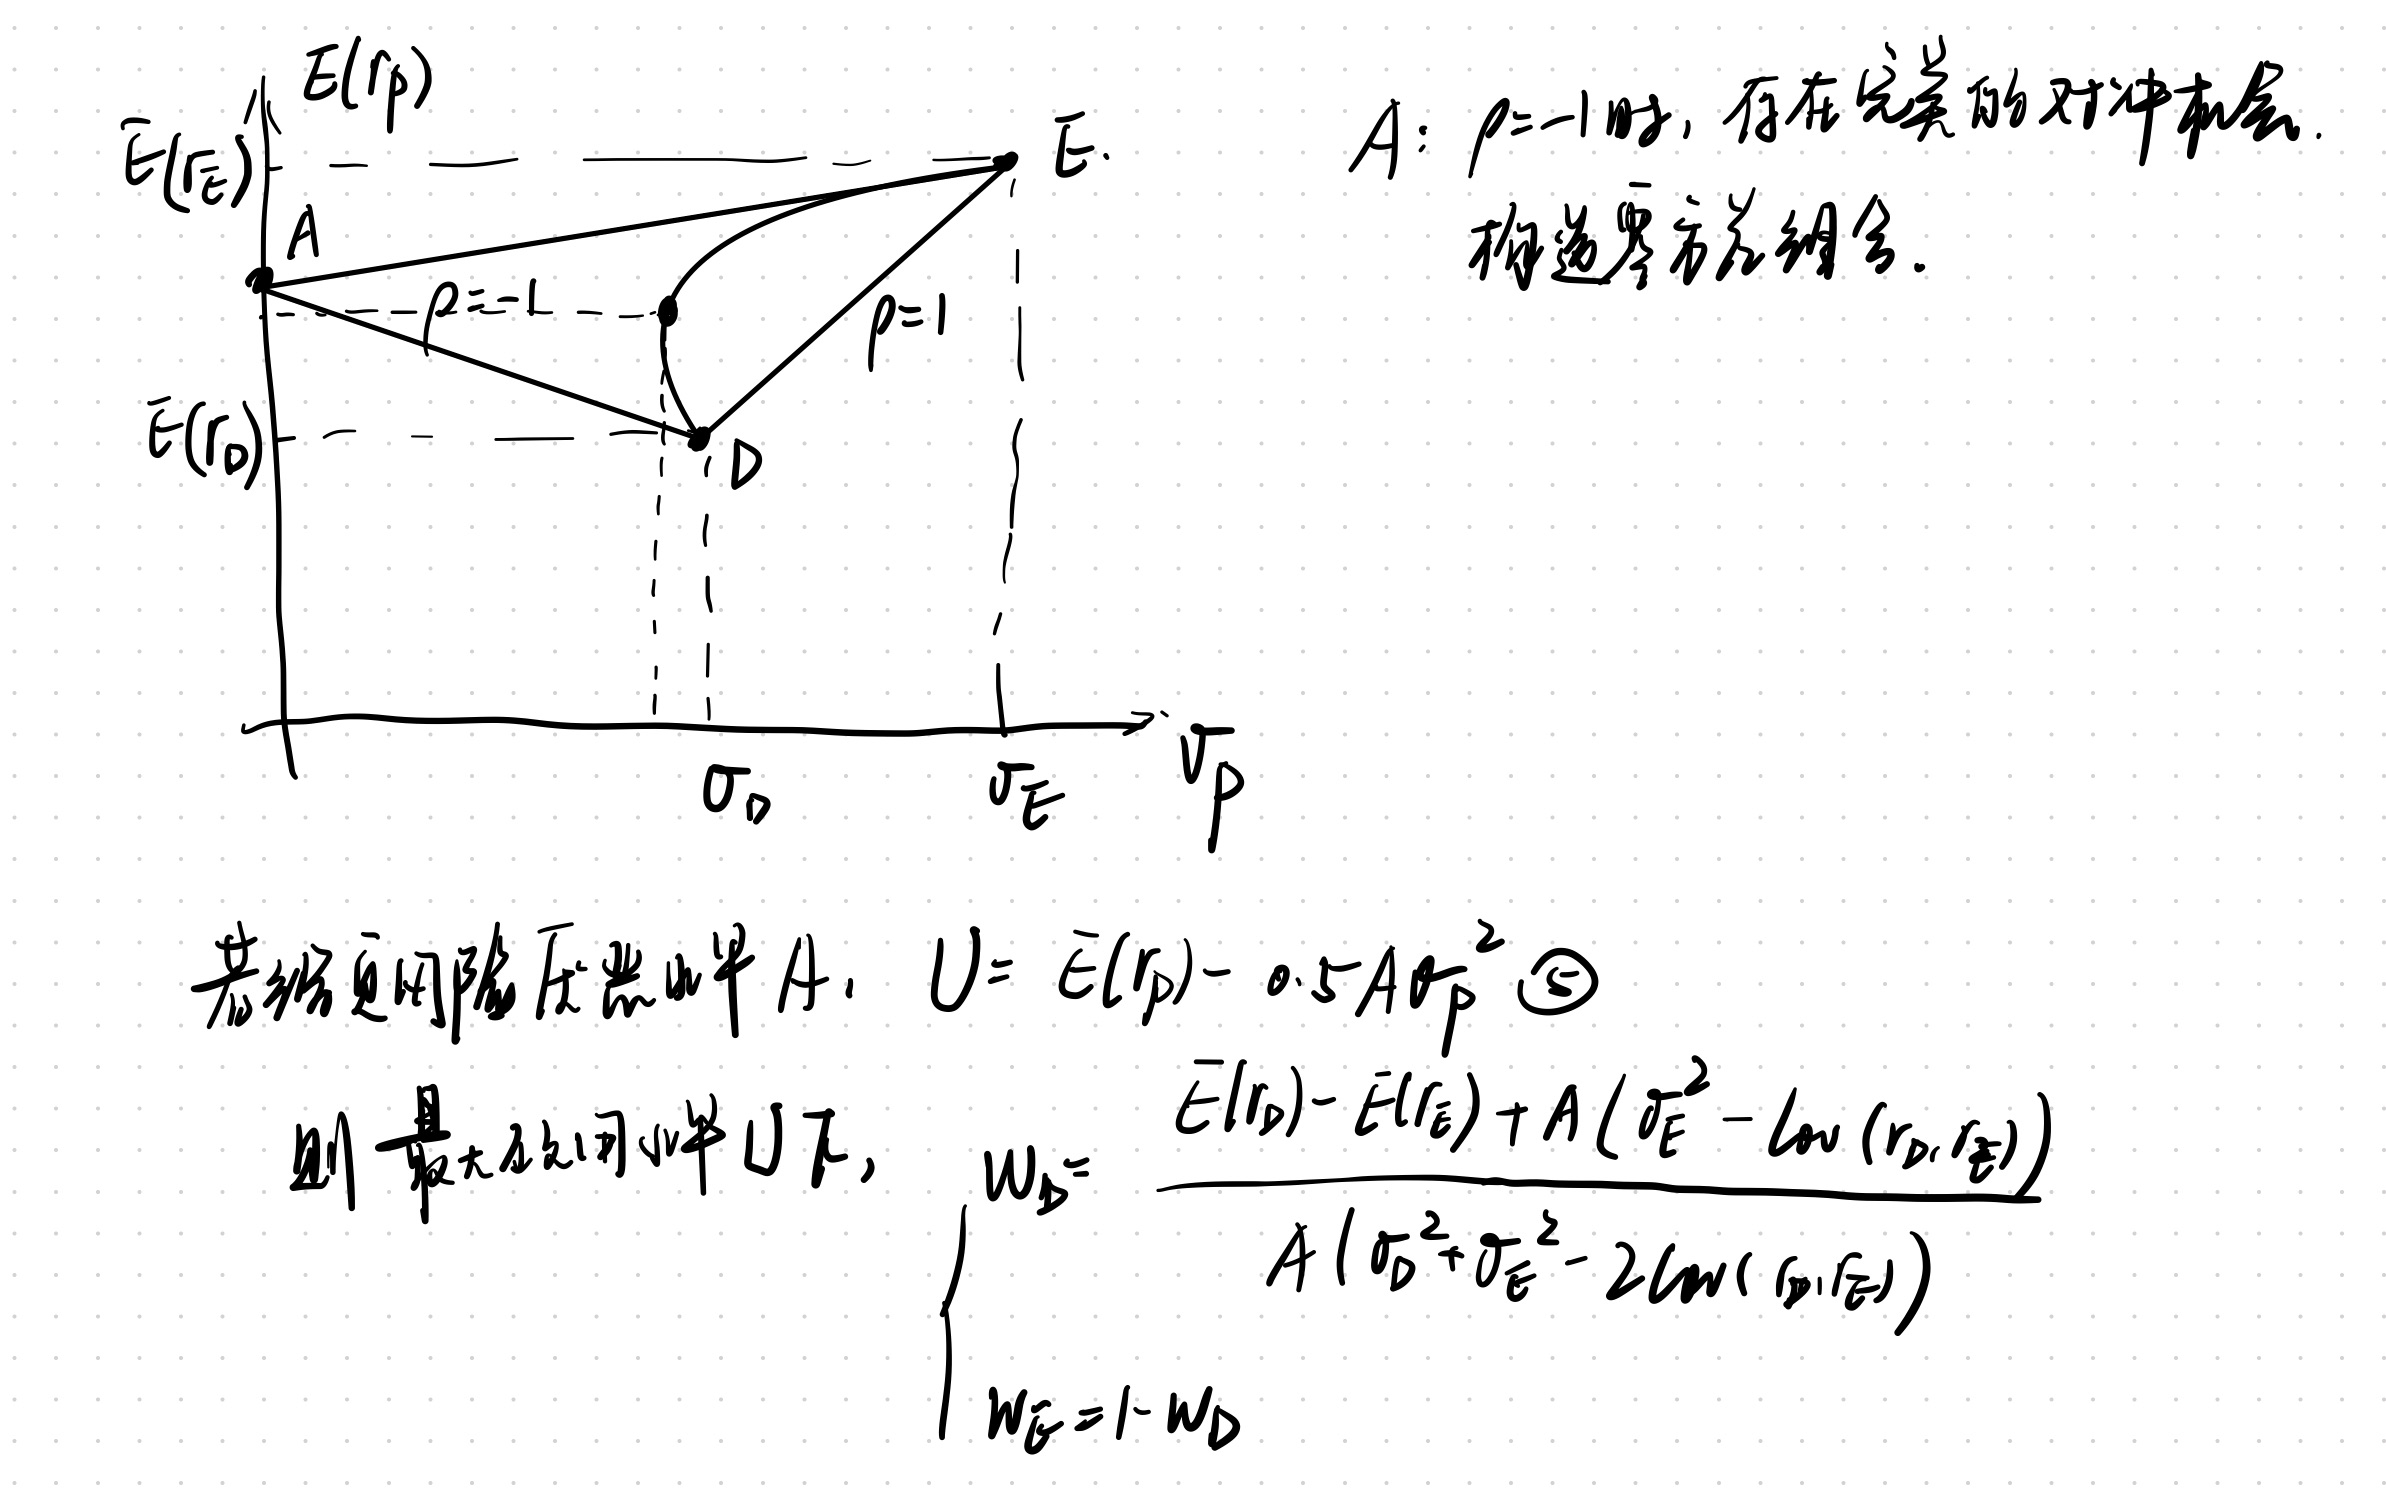 E(rp)
E(rE)
E.
A
ρ=-1
ρ=1
E(rD)
D
σD
σE
σp
A: ρ=-1时, 存在完美的对冲机会.
构造零方差组合.
若效用函数 A, U = E(rp) - 0.5Aσp² ⑤
则最大效用水平U下,
wD = (E(rD) - E(rE) + A(σE² - Cov(rD, rE))) / (A(σD² + σE² - 2Cov(rD, rE)))
wE = 1 - wD